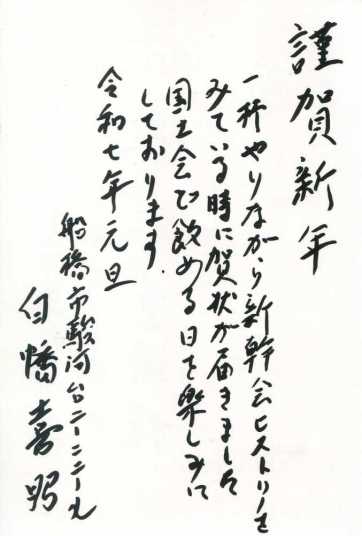 謹賀新年
一杯やりながら新幹会ヒストリーを
みている時に賀状が届きました
国士会で飲める日を楽しみに
しております。
令和七年元旦
船橋市駿河台二ー二ー
白幡壽